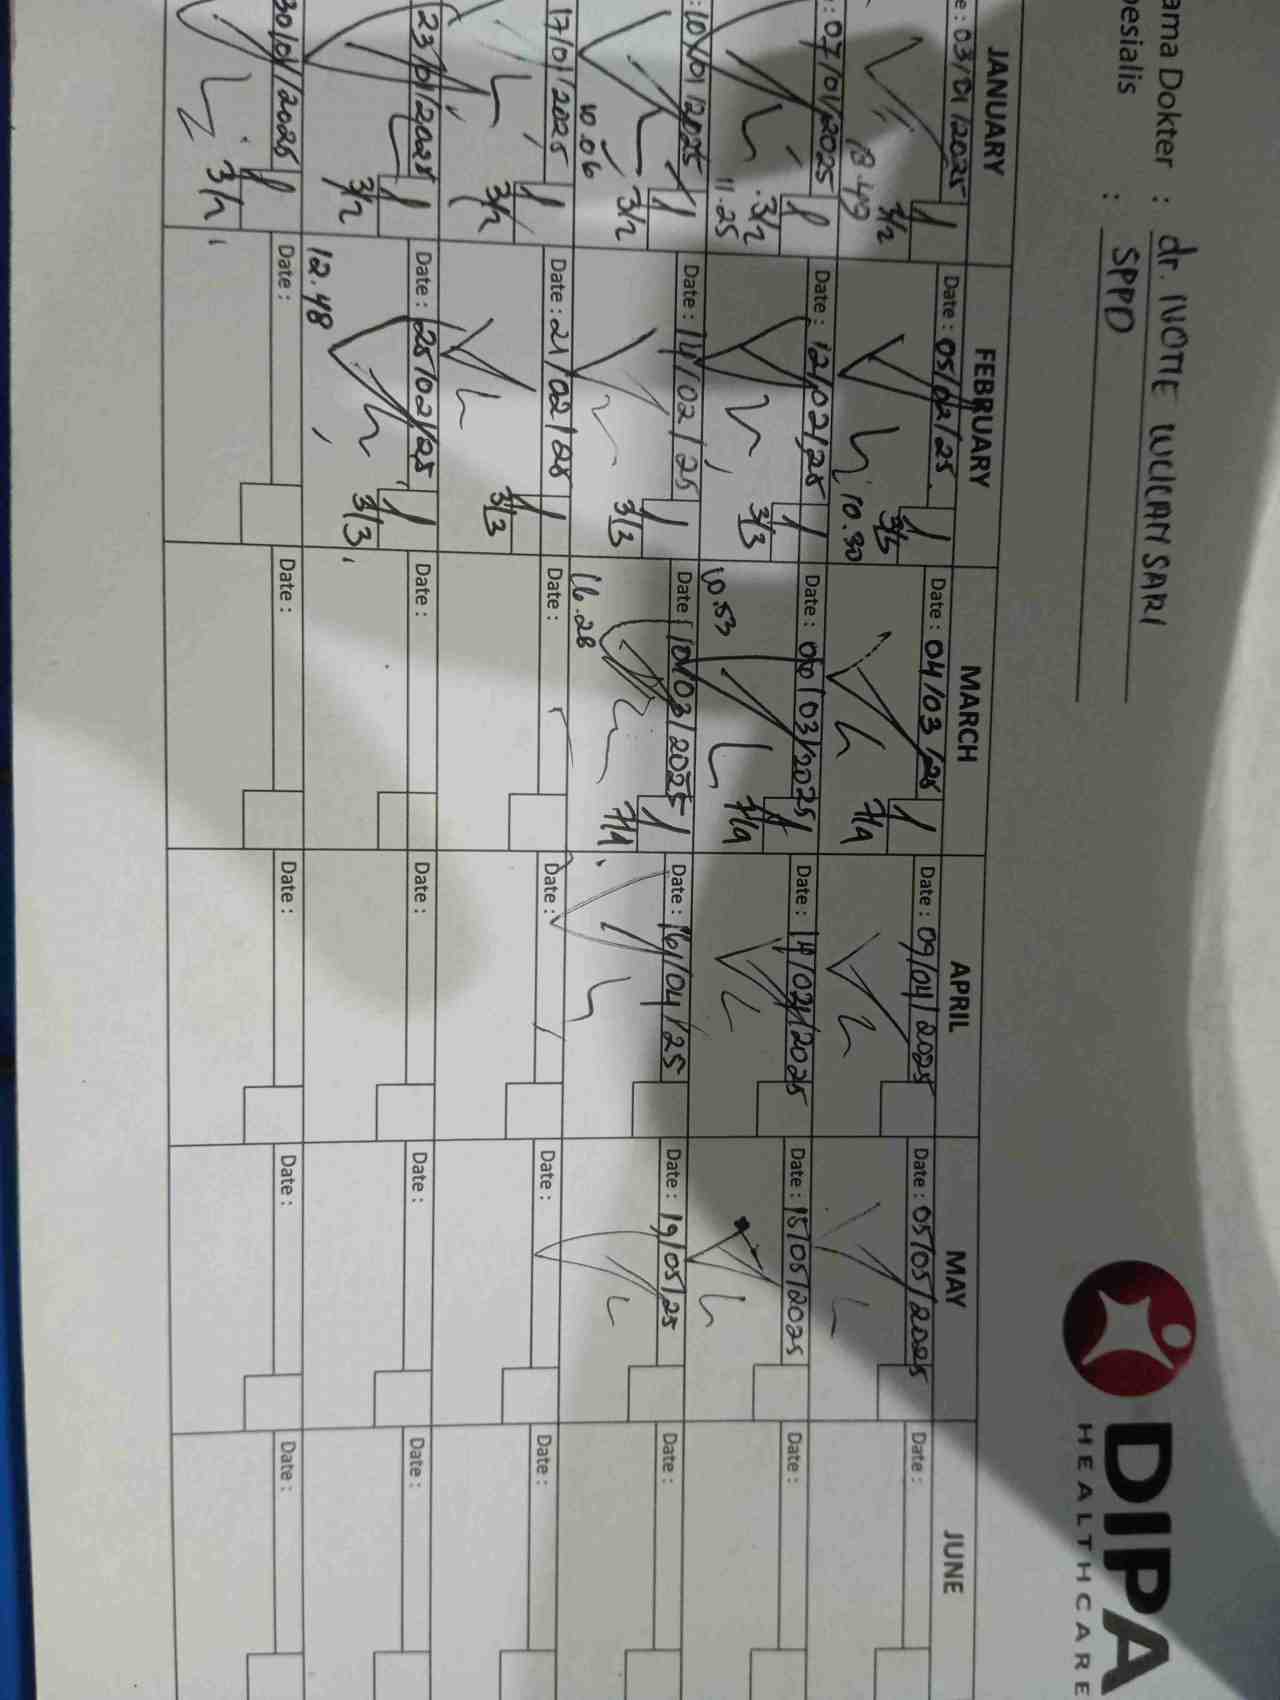 DIPA
HEALTHCARE
ama Dokter : dr. IVOTTE WULANSARI
pesialis : SPPD
JANUARY FEBRUARY MARCH APRIL MAY JUNE
e : 03/01/2025 Date : 05/02/25 Date : 04/03/25 Date : 09/04/2025 Date : 05/05/2025 Date :
3/2 10.30 7/4
: 07/01/2025 Date : 12/02/25 Date : 06/03/2025 Date : 14/04/2025 Date : 15/05/2025 Date :
11.25 3/2 3/3 10.53 7/4
: 10/01/2025 Date : 14/02/25 Date : 10/03/2025 Date : 16/04/25 Date : 19/05/25 Date :
10.06 3/2 3/3 16.28 7/4
17/01/2025 Date : 21/02/25 Date : Date : Date : Date :
3/2 3/3
23/01/2025 Date : 25/02/25 Date : Date : Date : Date :
3/2 12.48 3/3
30/01/2025 Date : Date : Date : Date : Date :
3/2